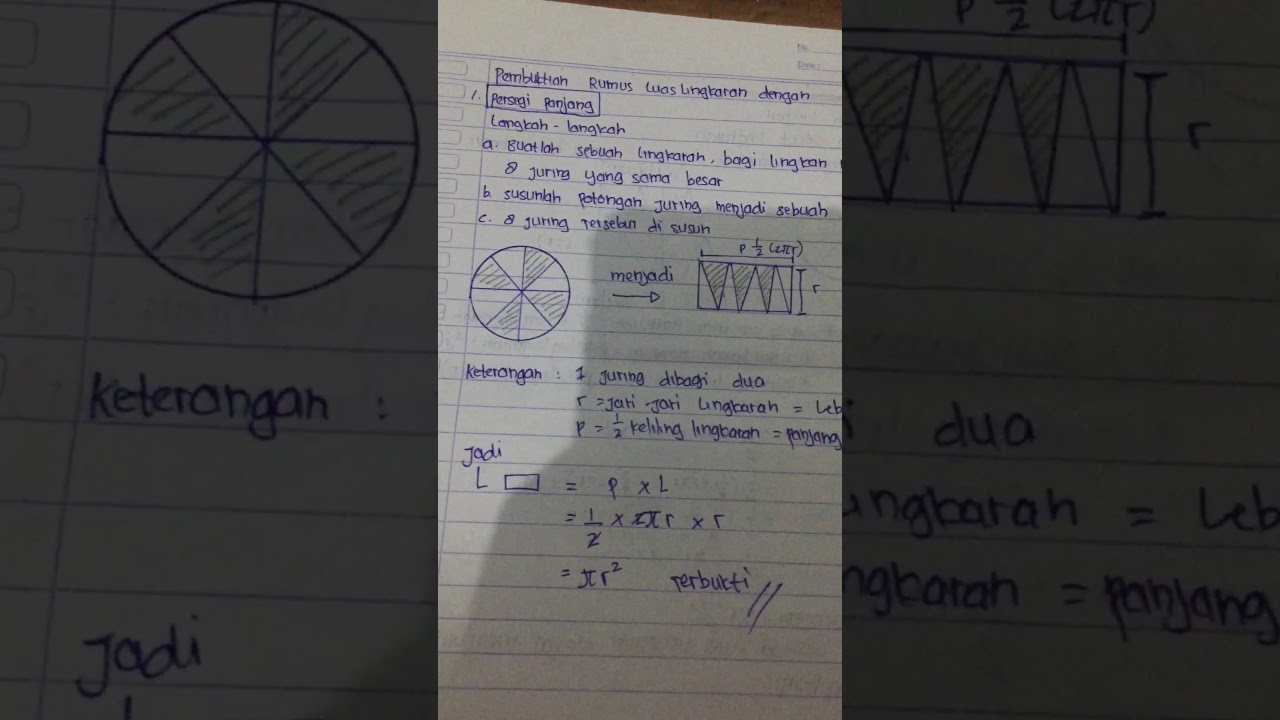 No.
Date:
Pembuktian Rumus Luas Lingkaran dengan
1. Persegi Panjang
Langkah - langkah
a. Buatlah sebuah lingkaran, bagi lingkran
8 juring yang sama besar
b. susunlah potongan juring menjadi sebuah
c. 8 juring tersebut di susun
p 1/2 (2πr)
menjadi
r
keterangan : 1 juring dibagi dua
r = jari - jari lingkaran = leb
p = 1/2 keliling lingkaran = panjang
Jadi
L ▭ = p x L
= 1/2 x 2πr x r
= πr² terbukti //
p 1/2 (2πr)
r
keterangan :
dua
ngkaran = Leb
ngkaran = panjang
Jadi